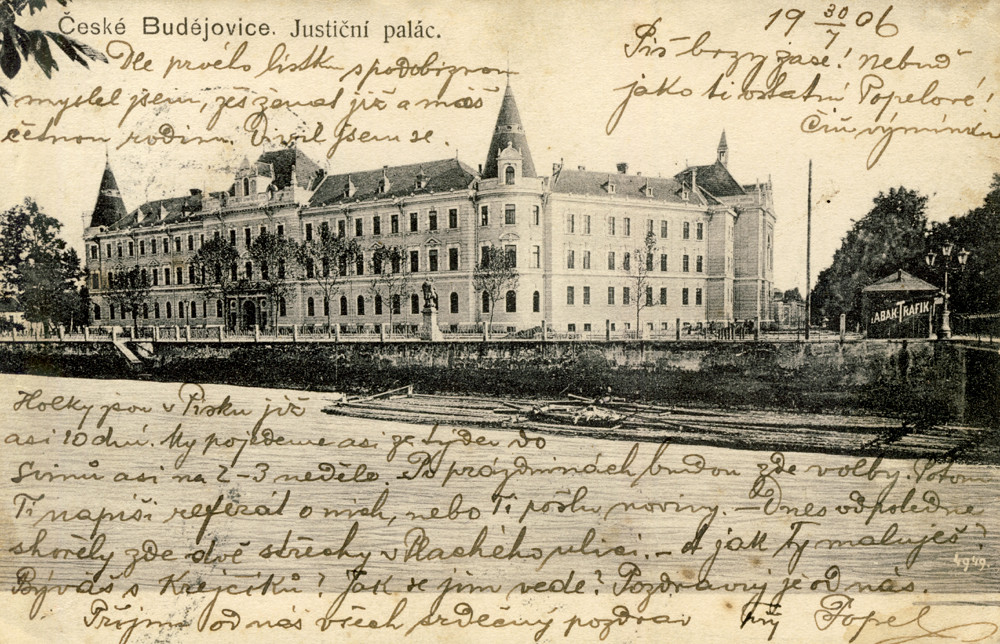 České Budějovice. Justiční palác.
19 30/7 06
Dle prvého lístku s podobiznou
myslel jsem, žes ženat již a máš
četnou rodinu. Divil jsem se.
Piš brzy zase! Nebuď
jako ti ostatní Popelové!
Čiň výminku
TABAK-TRAFIK
Holky jsou v Písku již
asi 10 dnů. My pojedeme asi za týden do
Svinů asi na 2-3 neděle. Po prázdninách budou zde volby. Potom
Ti napíši referát o nich, nebo Ti pošlu noviny. – Dnes odpoledne
shořely zde dvě střechy v Plachého ulici. – A jak Ty maluješ?
4949.
Býváš s Krejčíků? Jak se jim vede? Pozdravuj je od nás.
Přijmi od nás všech srdečný pozdrav Tvůj Popel